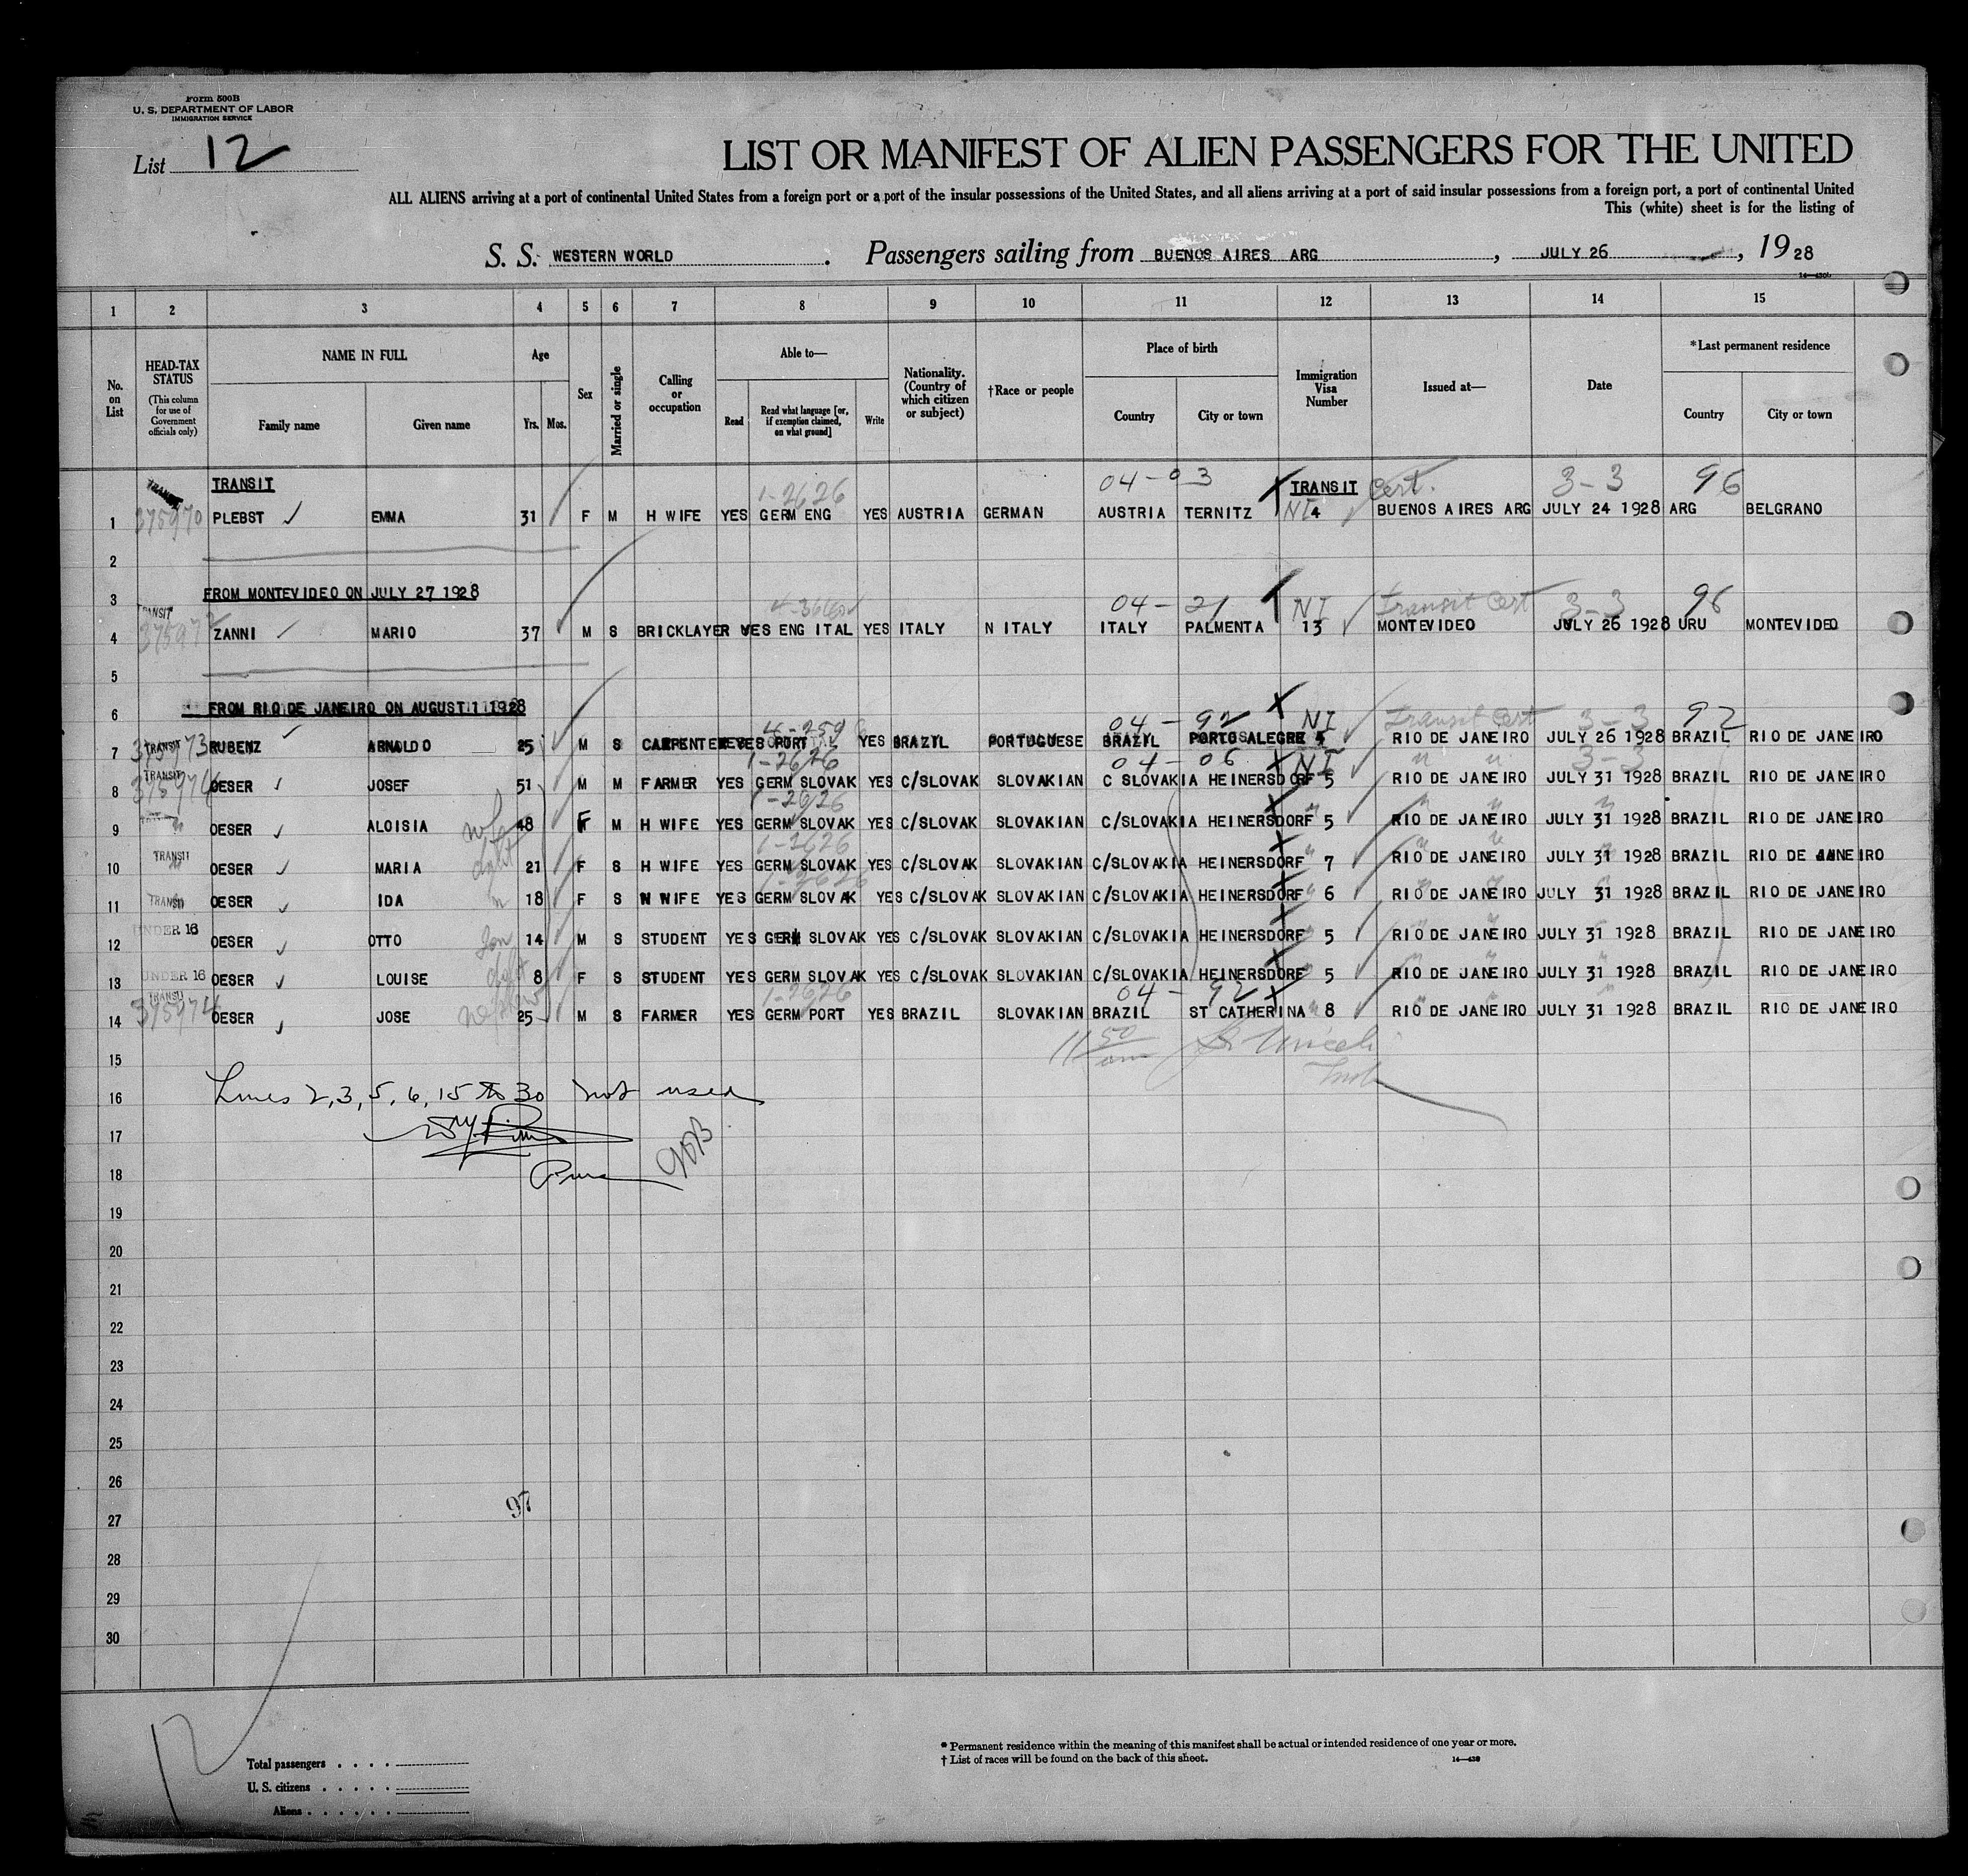 Form 500B
U. S. DEPARTMENT OF LABOR
IMMIGRATION SERVICE
List 12
LIST OR MANIFEST OF ALIEN PASSENGERS FOR THE UNITED
ALL ALIENS arriving at a port of continental United States from a foreign port or a port of the insular possessions of the United States, and all aliens arriving at a port of said insular possessions from a foreign port, a port of continental United
This (white) sheet is for the listing of
S. S. WESTERN WORLD . Passengers sailing from BUENOS AIRES ARG , JULY 26 , 19 28
1 2 3 4 5 6 7 8 9 10 11 12 13 14 15
No. on List
HEAD-TAX STATUS (This column for use of Government officials only)
NAME IN FULL
Family name Given name
Age
Yrs. Mos.
Sex
Married or single
Calling or occupation
Able to—
Read
Read what language [or, if exemption claimed, on what ground]
Write
Nationality. (Country of which citizen or subject)
†Race or people
Place of birth
Country City or town
Immigration Visa Number
Issued at—
Date
*Last permanent residence
Country City or town
TRANSIT 1-2626 04-03 TRANSIT Cert. 3-3 96
1 375970 PLEBST EMMA 31 F M H WIFE YES GERM ENG YES AUSTRIA GERMAN AUSTRIA TERNITZ NI 4 BUENOS AIRES ARG JULY 24 1928 ARG BELGRANO
2
3 FROM MONTEVIDEO ON JULY 27 1928
TRANSIT 04-21 NI Transit Cert 3-3 96
4 ZANNI MARIO 37 M S BRICKLAYER YES ENG ITAL YES ITALY N ITALY ITALY PALMENTA 13 MONTEVIDEO JULY 26 1928 URU MONTEVIDEO
5
6 FROM RIO DE JANEIRO ON AUGUST 1 1928
04-92 NI Transit Cert 3-3 92
7 TRANSIT 375973 RUBENZ ARNOLDO 25 M S CARPENTER YES PORT YES BRAZIL PORTUGUESE BRAZIL PORTO ALEGRE 5 RIO DE JANEIRO JULY 26 1928 BRAZIL RIO DE JANEIRO
1-2626 04-06 NI " " 3-3
8 TRANSIT 375974 OESER JOSEF 51 M M FARMER YES GERM SLOVAK YES C/SLOVAK SLOVAKIAN C SLOVAKIA HEINERSDORF 5 RIO DE JANEIRO JULY 31 1928 BRAZIL RIO DE JANEIRO
1-2626
9 OESER ALOISIA wife 48 F M H WIFE YES GERM SLOVAK YES C/SLOVAK SLOVAKIAN C/SLOVAKIA HEINERSDORF " 5 RIO DE JANEIRO JULY 31 1928 BRAZIL RIO DE JANEIRO
1-2626
10 TRANSIT OESER MARIA 21 F S H WIFE YES GERM SLOVAK YES C/SLOVAK SLOVAKIAN C/SLOVAKIA HEINERSDORF " 7 RIO DE JANEIRO JULY 31 1928 BRAZIL RIO DE JANEIRO
1-2626
11 TRANSIT OESER IDA " 18 F S W WIFE YES GERM SLOVAK YES C/SLOVAK SLOVAKIAN C/SLOVAKIA HEINERSDORF " 6 RIO DE JANEIRO JULY 31 1928 BRAZIL RIO DE JANEIRO
12 UNDER 16 OESER OTTO Son 14 M S STUDENT YES GERM SLOVAK YES C/SLOVAK SLOVAKIAN C/SLOVAKIA HEINERSDORF " 5 RIO DE JANEIRO JULY 31 1928 BRAZIL RIO DE JANEIRO
13 UNDER 16 OESER LOUISE 8 F S STUDENT YES GERM SLOVAK YES C/SLOVAK SLOVAKIAN C/SLOVAKIA HEINERSDORF " 5 RIO DE JANEIRO JULY 31 1928 BRAZIL RIO DE JANEIRO
1-2626 04-92
14 TRANSIT 375974 OESER JOSE nephew 25 M S FARMER YES GERM PORT YES BRAZIL SLOVAKIAN BRAZIL ST CATHERINA " 8 RIO DE JANEIRO JULY 31 1928 BRAZIL RIO DE JANEIRO
15 11 50 am
16 Lines 2, 3, 5, 6, 15 to 30 not used
17
18
19
20
21
22
23
24
25
26
97
27
28
29
30
12
Total passengers . . . .
U. S. citizens . . . . .
Aliens . . . . . .
* Permanent residence within the meaning of this manifest shall be actual or intended residence of one year or more.
† List of races will be found on the back of this sheet. 14—430